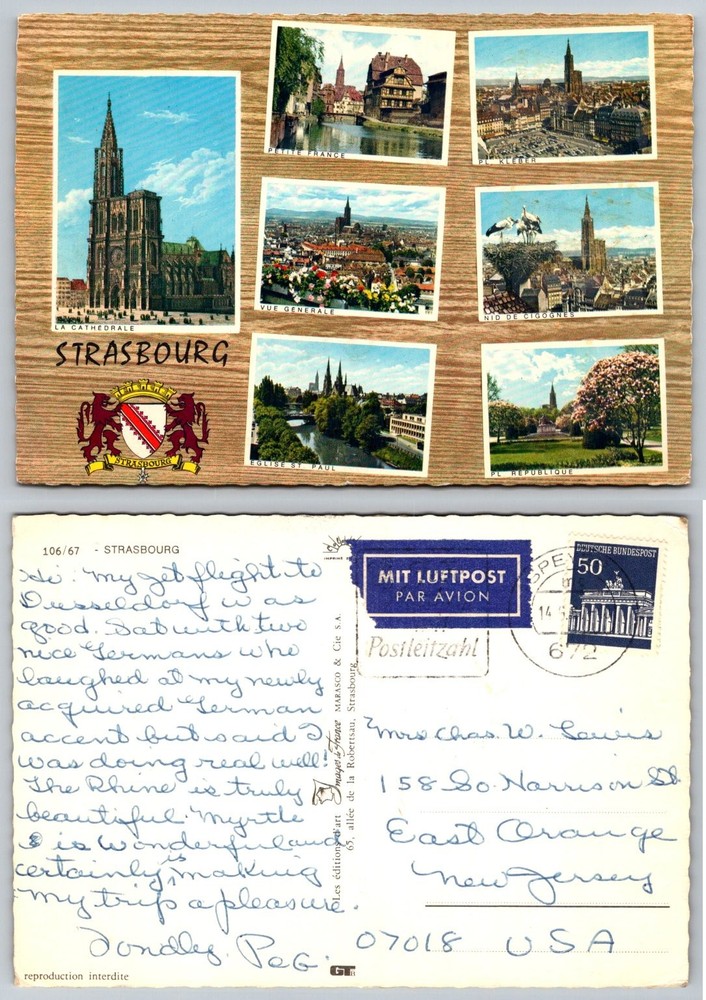 PETITE FRANCE
PL. KLEBER
LA CATHÉDRALE
VUE GENERALE
NID DE CIGOGNES
STRASBOURG
STRASBOURG
EGLISE ST PAUL
PL. REPUBLIQUE
106/67 - STRASBOURG
Hi. My jet flight to
Dusseldorf was
good. Sat with two
nice Germans who
laughed at my newly
acquired German
accent but said I
was doing real well!
The Rhine is truly
beautiful. Myrtle
is wonderful and
certainly is making
my trip a pleasure.
Fondly, Peg.
reproduction interdite
Les éditions d'art Images de France MARASCO & Cie s.a.
65, allée de la Robertsau, Strasbourg
MIT LUFTPOST
PAR AVION
Postleitzahl
SPEY
14
672
DEUTSCHE BUNDESPOST
50
Mrs Chas. W. Lewis
158 So. Harrison St
East Orange
New Jersey
07018 USA
GT